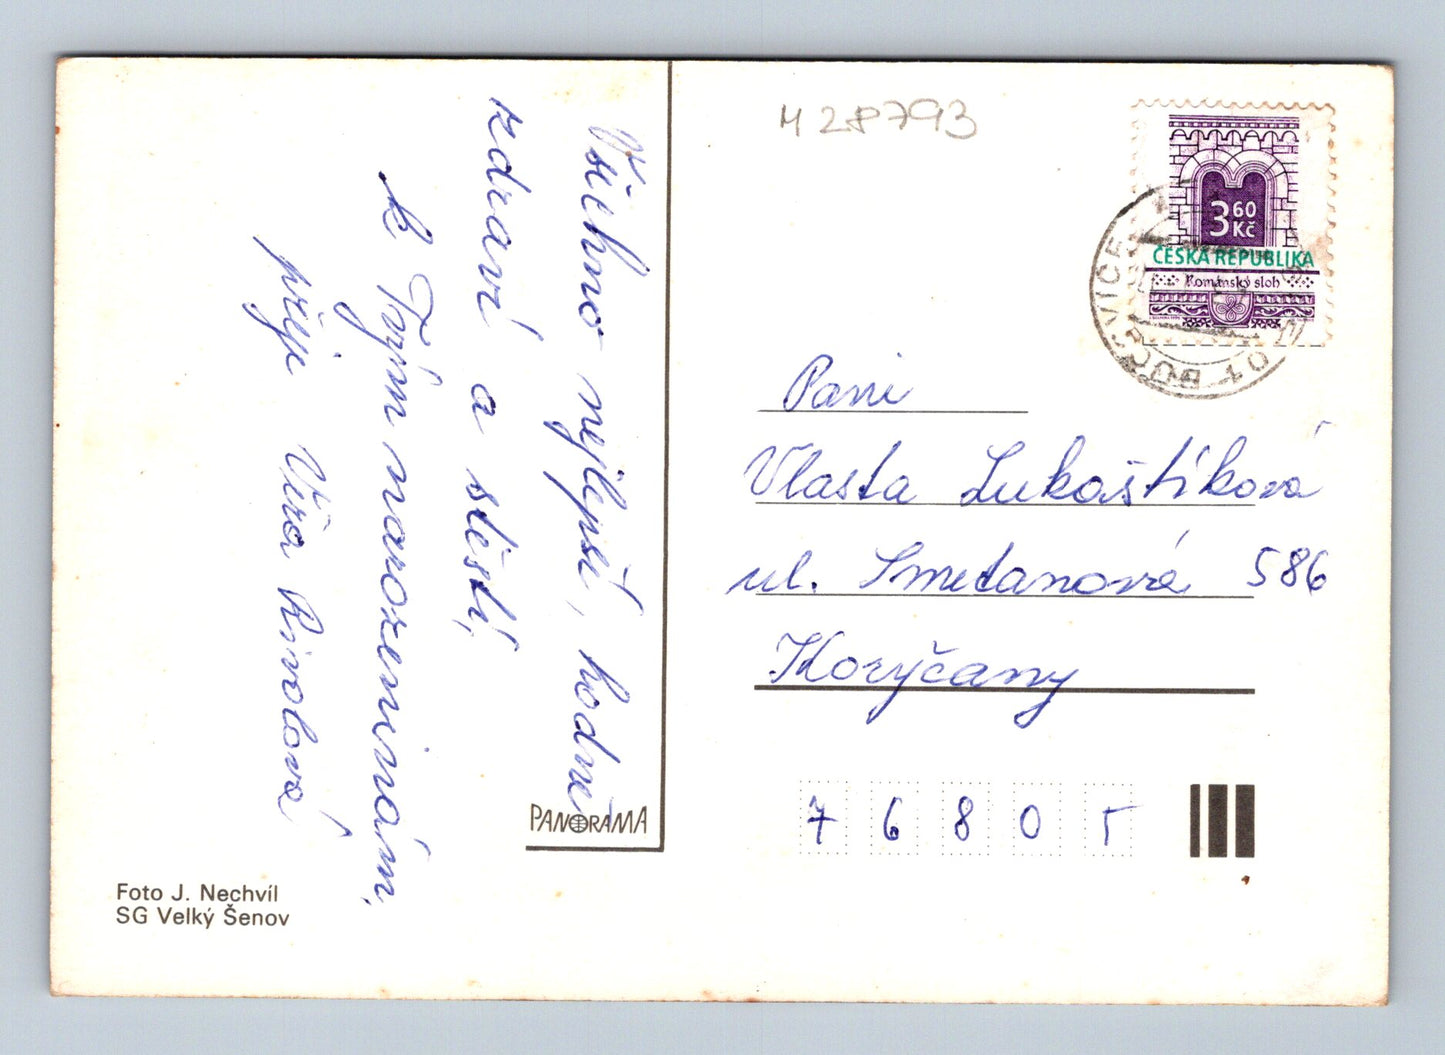 Všechno nejlepší, hodně
zdraví a štěstí,
k Tvým narozeninám,
přeje Věra
PANORAMA
Foto J. Nechvíl
SG Velký Šenov
M 28793
3 60
Kč
ČESKÁ REPUBLIKA
Románský sloh
BUČOVICE 1
Paní
Vlasta Lukaštíková
ul. Smetanová 586
Koryčany
7 6 8 0 5